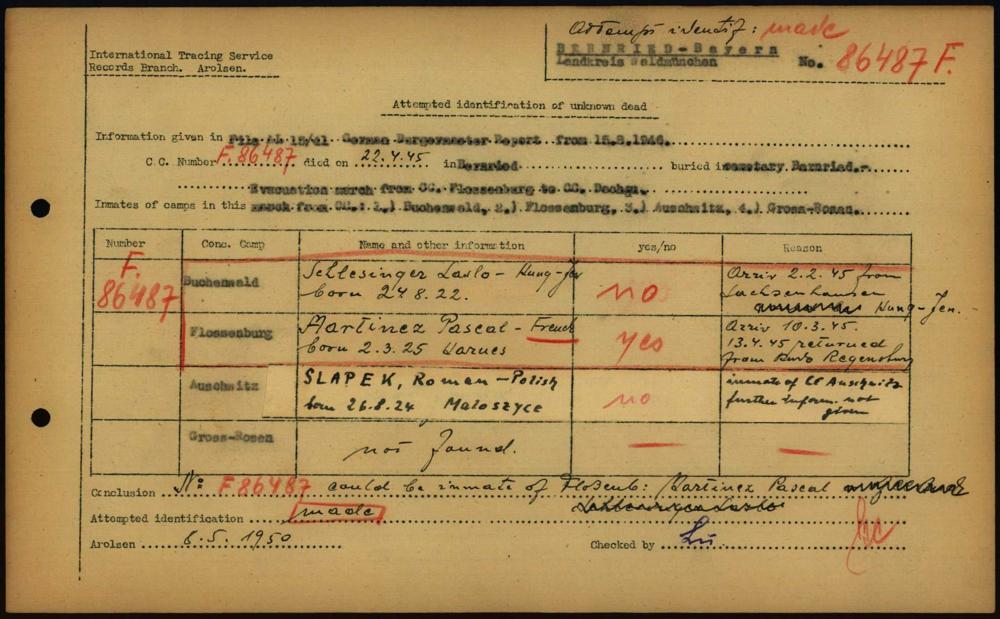 Attempt identif: made
International Tracing Service
Records Branch. Arolsen.
BERNRIED-Bayern
Landkreis Waldmünchen
No. 86487 F.
Attempted identification of unknown dead
Information given in File AL 12/41 German Burgermester Report from 15.8.1946.
C.C. Number F. 86487 died on 22.4.45 in Bernried buried in cemetary Bernried.-
Evacuation march from CC. Flossenburg to CC. Dachau.
Inmates of camps in this march from CC.: 1.) Buchenwald, 2.) Flossenburg, 3.) Auschwitz, 4.) Gross-Rosen.
Number Conc. Camp Name and other information yes/no Reason
F. 86487
Buchenwald
Schlesinger Laslo - Hung-Jew
born 24 8. 22.
no
Arriv 2.2.45 from
Sachsenhausen
Hung-Jew.
Flossenburg
Martinez Pascal - French
born 2.3.25 Warnes
yes
Arriv 10.3.45.
13.4.45 returned
from Kdo Regensburg
Auschwitz
SLAPEK, Roman - Polish
born 26.8.24 Matoszyce
no
inmate of CC Auschwitz
further inform. not
given
Gross-Rosen
not found.
Conclusion No: F 86487 could be inmate of Flosenb: Martinez Pascal
Attempted identification made
Arolsen 6.5.1950 Checked by Lü